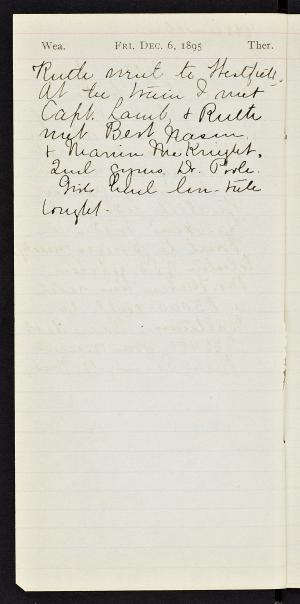 Wea. FRI. DEC. 6, 1895 Ther.
Ruth went to Westfield.
At the train I met
Capt. Lamb, & Ruth
met Bert Nason
& Marion McKnight.
2nd gyms. Dr. Poole.
Girls had
tonight.